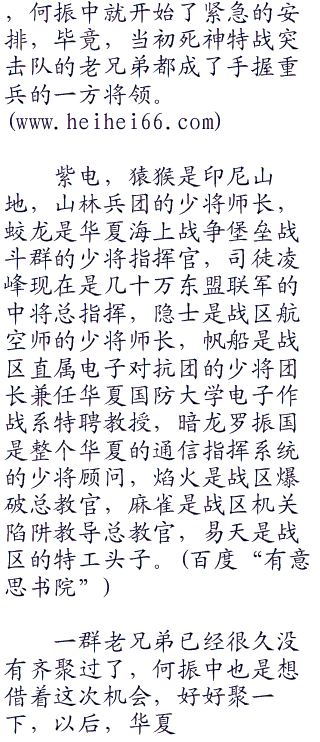 ，何振中就开始了紧急的安
排，毕竟，当初死神特战突
击队的老兄弟都成了手握重
兵的一方将领。
(www.heihei66.com)
紫电，猿猴是印尼山
地，山林兵团的少将师长，
蛟龙是华夏海上战争堡垒战
斗群的少将指挥官，司徒凌
峰现在是几十万东盟联军的
中将总指挥，隐士是战区航
空师的少将师长，帆船是战
区直属电子对抗团的少将团
长兼任华夏国防大学电子作
战系特聘教授，暗龙罗振国
是整个华夏的通信指挥系统
的少将顾问，焰火是战区爆
破总教官，麻雀是战区机关
陷阱教导总教官，易天是战
区的特工头子。(百度“有意
思书院”)
一群老兄弟已经很久没
有齐聚过了，何振中也是想
借着这次机会，好好聚一
下，以后，华夏